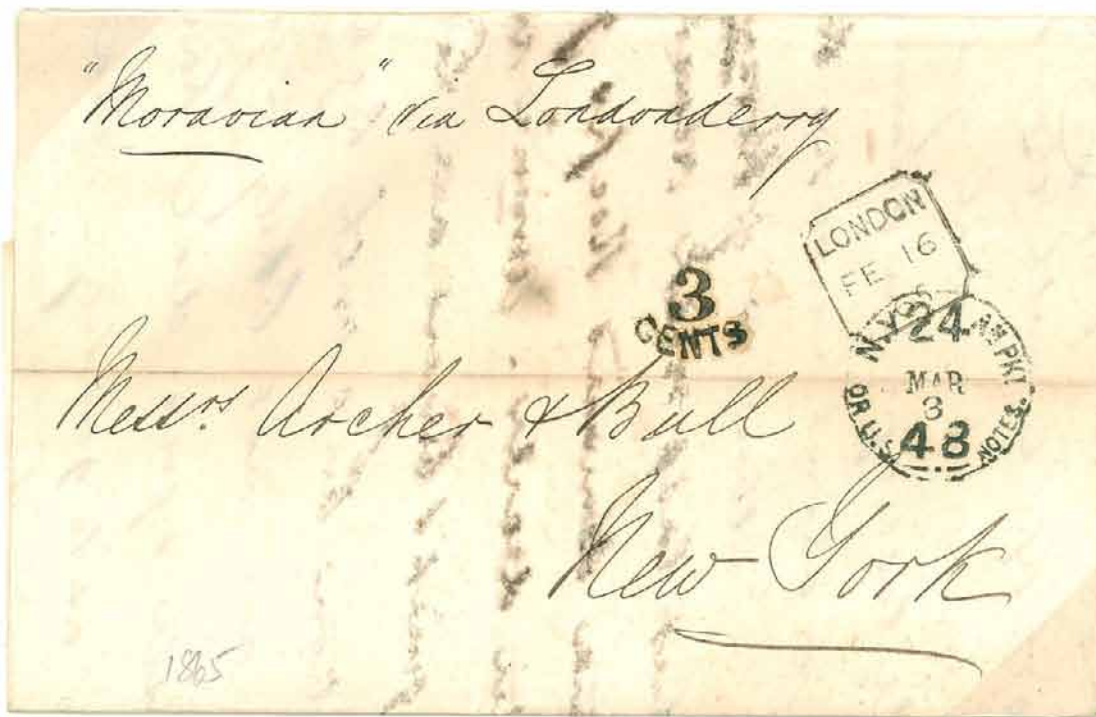 "Moravian" via Londonderry
LONDON
FE 16
3
CENTS
N.Y. 24 AM PKT
MAR
3
OR U.S. 48 NOTES.
Messrs. Archer & Bull
New York
1865